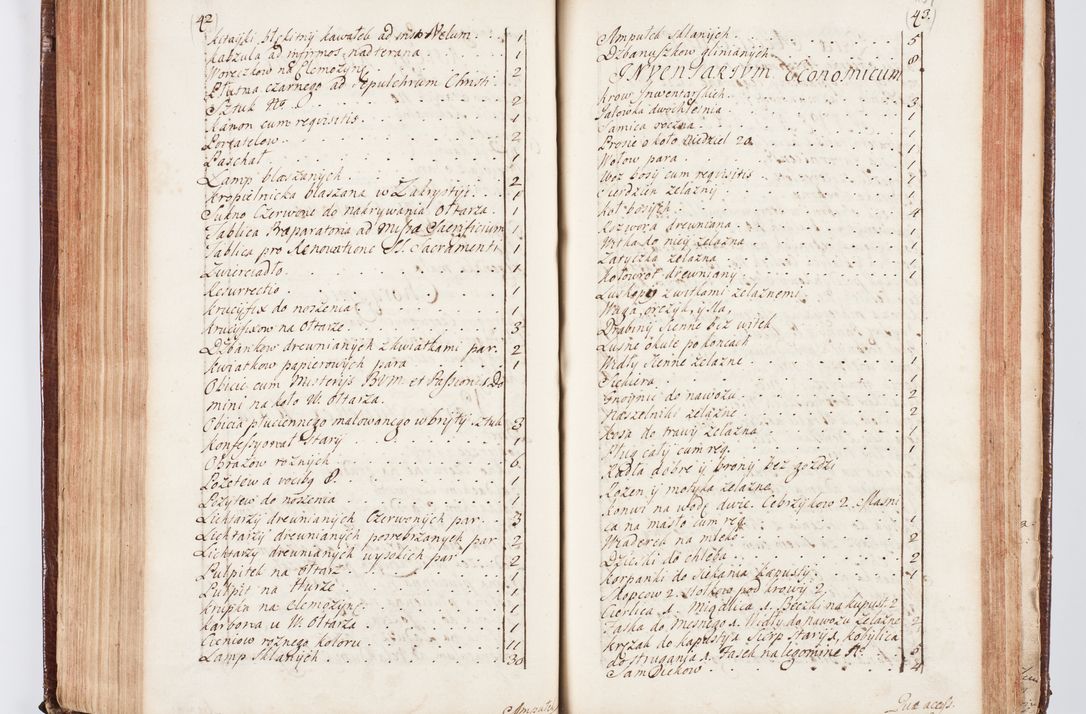 42
Kitayki błękitny kawałek ad instr Velum 1
Kabzula ad infirmos nadterana 1
Woreczkow na Elemozynę 2
Płutna czarnego ad Sepulchrum Christi
Sztuk No 2
Kanon cum requisitis 1
Portatelow 2
Paschał 1
Lamp blaszanych 2
Kropielnicka blaszana w Zakrystyi 1
Sukno Czerwone do nakrywania Ołtarza 1
Tablica Praparatoria ad Missa Sacrificium 1
Tablica pro Renovatione SS. Sacramenti 1
Zwierciadło 1
Resurrectio 1
Krucyfix do noszenia 1
Krucyfixow na Ołtarze 3
Dzbankow drewnianych z kwiatkami par 2
Kwiatkow papierowych para 1
Obicie cum Misterijs BVM. et Passionis Do
mini na koło W. Ołtarza.
Obicia płuciennego malowanego w bryty sztuk 3
Konfessyonał Stary 1
Obrazow roznych 6
1
do noszenia 1
Lichtarzy drewnianych Czerwonych par 3
Lichtarzy drewnianych posrebrzanych par 2
Lichtarzy drewnianych wysokich par 2
Pulpitek na Ołtarz 1
Pulpit na 1
Krupka na Elemozynę 1
Karbona u W. Ołtarza 1
Cieniow roznego koloru 11
Lamp Sklanych 30
43.
Ampułek Sklanych 5
Dzbanuszkow glinianych 8
INVENTARIUM Economicum
Krow Inwentarskich 3
Jałowka dwochletnia 1
Samica roczna 1
Prosie około niedziel 20 1
Wołow para 1
Woz bosy cum requisitis 1
Sierdzien zelazny 1
Koł bosych 4
Rozwora drewniana 1
Witka do niey zelazna 1
Zatyczka zelazna 1
Kołowrot drewniany 1
z witkami zelaznemi
Waga, orczyk,
Drabiny Sienne bez witek
Lusnie okute po koncach
Widły Sienne zelazne 1
Siekiera 1
do nawozu 2
Naszelniki zelazne 2
Kosa do trawy zelazna 1
Pług cały cum req. 1
Radła dobre y brony bez gozdzi
Rozen y motyka zelazne
Konwi na wodę duze. Cebrzykow 2. Masni
ca na masło cum req 1
Wiaderek na mleko 2
Dzieski do chleba 2
Korpanki do siekania kapusty 1
Skopcow 2. Stołkow pod krowy 2.
Cierlica 1. Międlica 1. Beczki na kapust. 2
Faska do mięsnego 1. Widły do nawozu zelazne 2
Kryzak do kapusty a Sierp stary 1, kobylica
do strugania 1. Fasek na legomine No 5
Sam 4
Ampułek